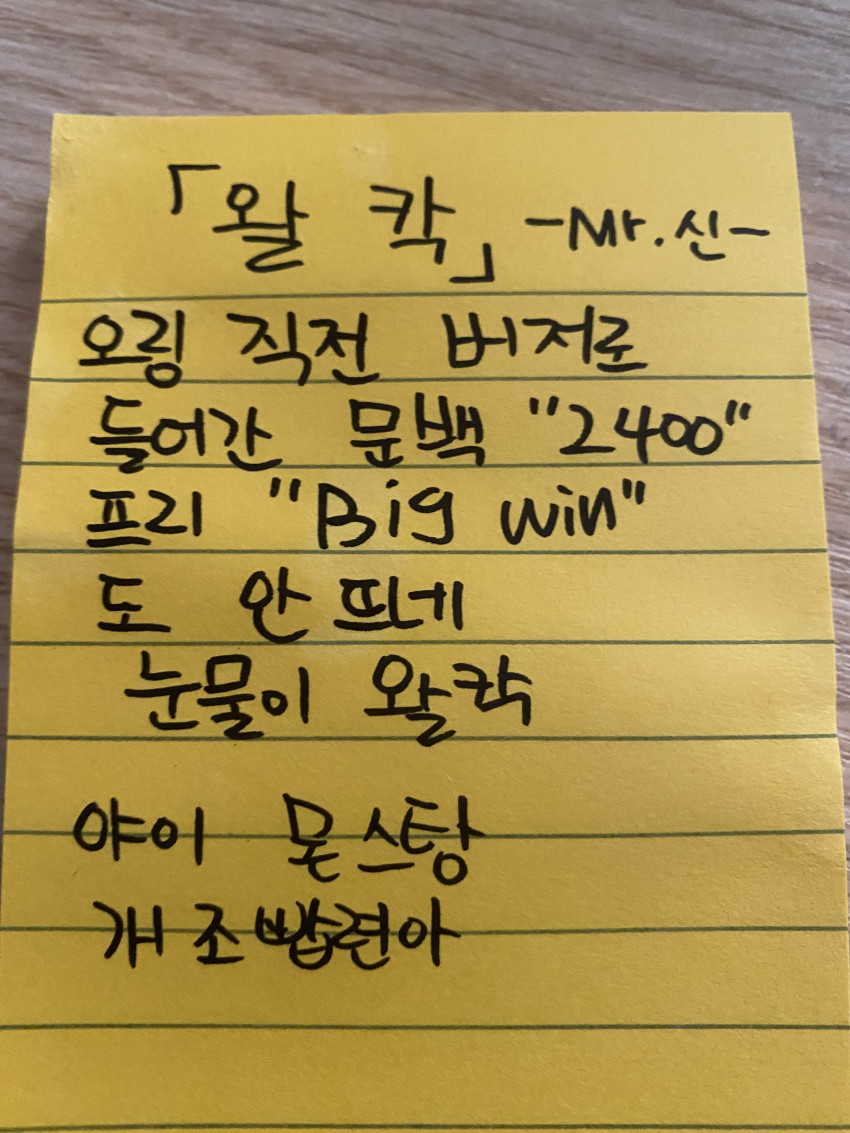 「왈 칵」 -Mr.신-
오링 직전 버저로
들어간 문백 "2400"
프리 "Big win"
도 안 뜨네
눈물이 왈칵
야이 못스탕
개 조빱련아